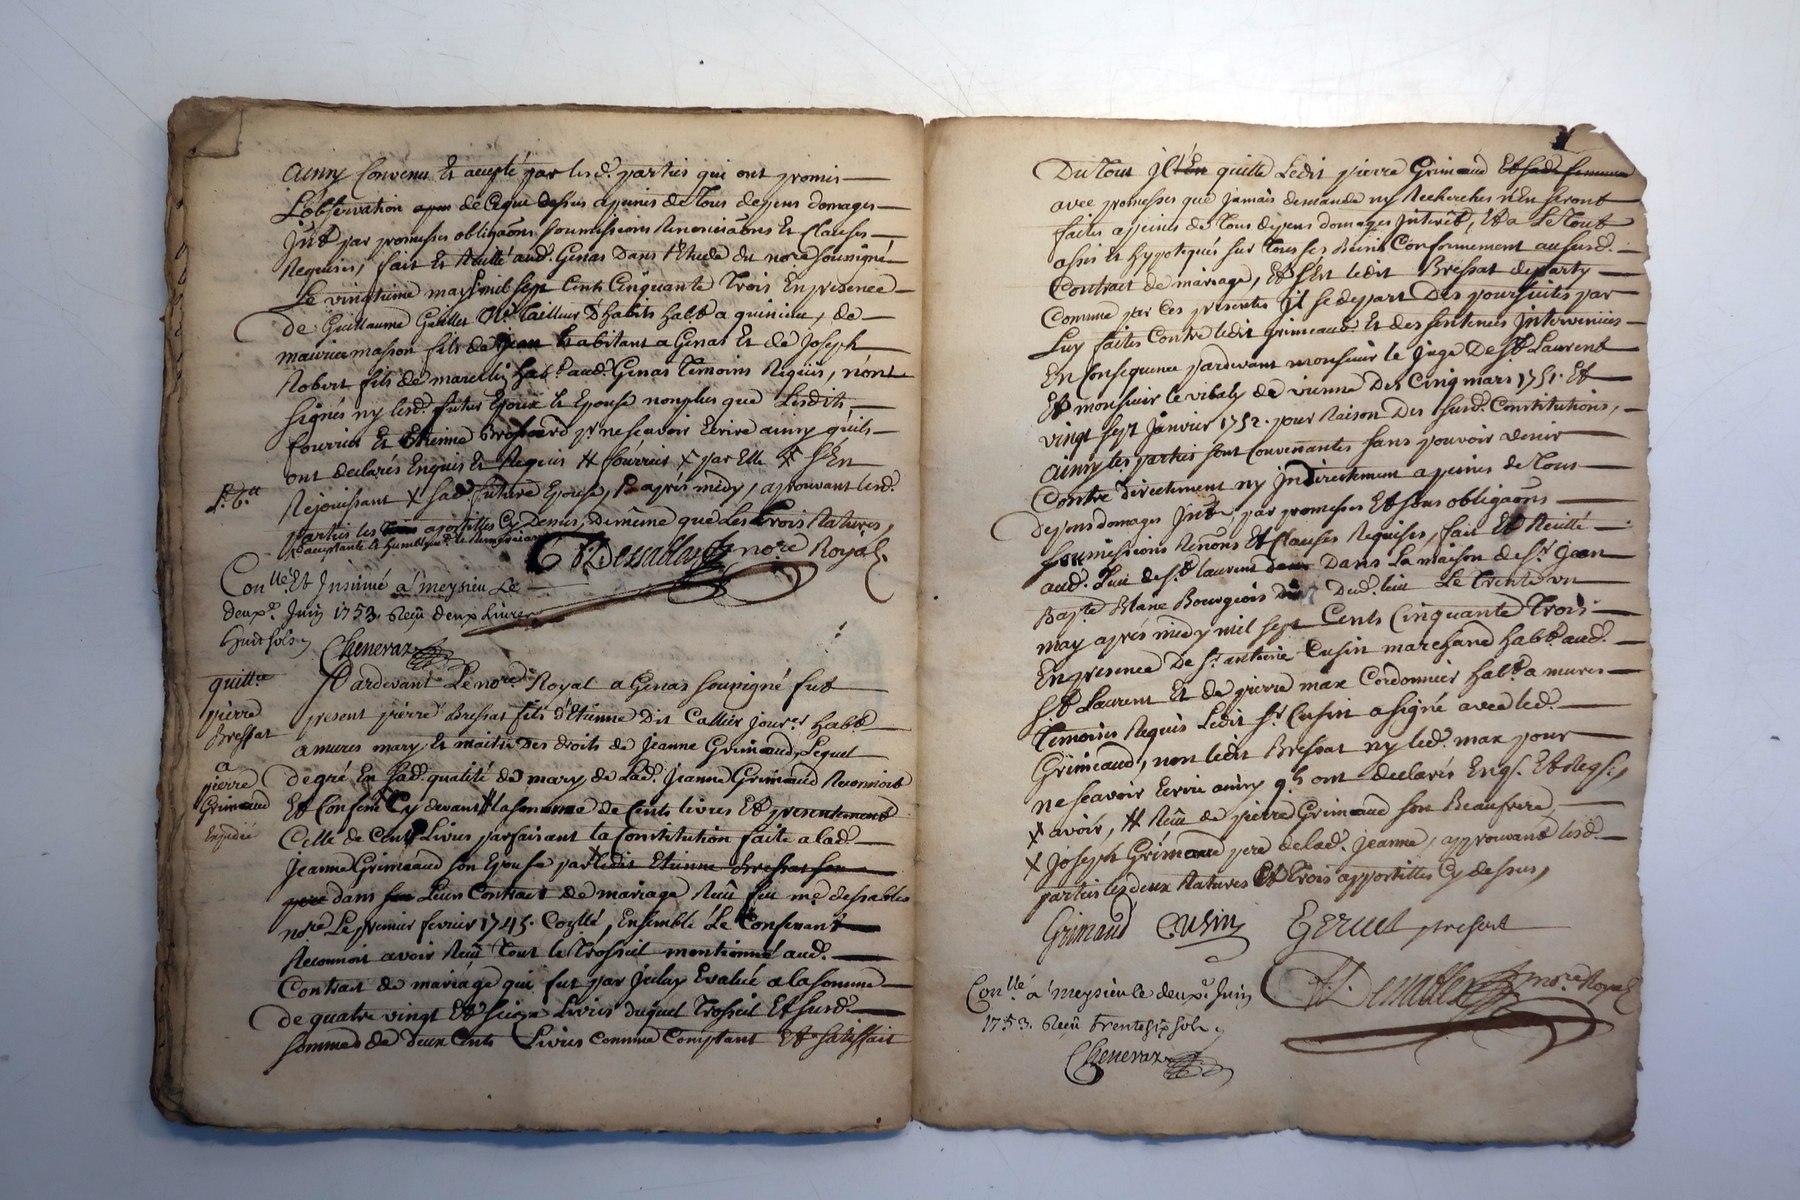 ainsy Convenu Et accepté par lesd. parties qui ont promis
L'observation de Ceque dessus apeines de Tous depens domages
Jnt par promesses obligaons soumissions Renonciaons Et Clauses
Requises, fait Et Recitté aud. Genas Dans l'Etude du no.re soussigné
Le vingtieme may mil sept Cents Cinquante Trois En presence
De Guillaume Gaillet M.e Tailleur d'habits hab.t a quinieu, de
maurice masson fils de jean habitant a Genas Et de Joseph
Robert fils de hab.t aud. Genas Temoins Requis, n'ont
signés ny lesd. futurs Epoux Et Epouse nonplus que Lesdits
fourrier Et Etienne p.r ne scavoir Ecrire ainsy quils
ont declarés Enquis Et Requis # fourrier X par Elle X S'En
Rejouissant X sad. future Epouse, & après midy, aprouvant lesd.
parties les apostilles Cy Dessus, demême que Les Trois Ratures,
acceptante & humblem.t le Remerciant
Dessables no.re Royal
Con.llé Et Jnsinué a meysieu Le
deux.e Juin 1753. Reçu deux Livres
huit sols
Cheneraz
quitt.ce
pierre
Bressat
a
pierre
Grimaud
Expedié
Pardevant Le no.re Royal a Genas soussigné fut
present pierre Bressat fils d'Etienne Dit Callier jour.er hab.t
a mures mary Et maitre Des droits de Jeanne Grimaud, Lequel
De gré En sad. qualité de mary de Lad. Jeanne Grimaud Reconnoit
Et Confesse Cy devant # la somme de Cents livres Et presentement
Celle de Cents Livres parfaisant la Constitution faite a lad.
Jeanne Grimeaud son Epouse par X ledit Etienne Bressat son
pere dans Leur Contract de mariage Reçu feu m.e dessables
no.re Le premier fevrier 1745. Co.llé, Ensemble Le Confessant
Reconnoit avoir Reçu Tout le Trosseil mentionné aud.
Contract de mariage qui fut par Jceluy Evalué a la somme
de quatre vingt Et seize Livres duquel Trosseil Et susd.
sommes de deux Cents Livres comme Comptant Et satisfait
Du Tout Jl En quitte Ledit pierre Grimaud Et sade femme
avec promesses que jamais demande ny Recherches n'En seront
faites apeines de Tous depens domages Jnterêt, Et a Le Tout
assis Et hypotequés sur Tous ses Biens Conformement au susd.
Contract de mariage, Et s'Est ledit Bressat departy
Comme par Ces presentes Jl se depart Des poursuites par
Luy faites Contre ledit Grimeaud Et des sentences Jntervenües
En Consequence pardevant monsieur le juge De S.t Laurent
Et monsieur le vibaly de vienne Des Cinq mars 1751. Et
vingt sept Janvier 1752. pour Raison Des susd. Constitutions,
ainsy les parties sont Convenantes sans pouvoir venir
Contre directement ny Jndirectement apeines de Tous
Depens domages Jnt par promesses Et sous obligaons
soumissions Renons Et Clauses Requises, fait Et Recitté
aud. Lieu de S.t laurent Dans La maison de S.r Jean
Bap.te Blanc Bourgeois Dud. lieu Le Trente un
may après midy mil sept Cents Cinquante Trois
En presence De S.r antoine Cusin marchand hab.t aud.
S.t Laurent Et de pierre max Cordonnier hab.t a mures
Temoins Requis Ledit S.r Cusin a signé avec led.
Grimeaud, non ledit Bressat ny led. max pour
ne scavoir Ecrire ainsy q.ls ont declarés Enq.s Et Reqs.,
X avoir, # Reçu de pierre Grimeaud son Beaufrere,
X Joseph Grimeaud pere de lad. Jeanne, approuvant lesd.
parties les deux Ratures Et Trois appostilles Cy dessus,
Grimaud Cusin present
Dessables no.re Royal
Con.llé a meysieu le deux.e Juin
1753. Reçu Trente six sols
Cheneraz